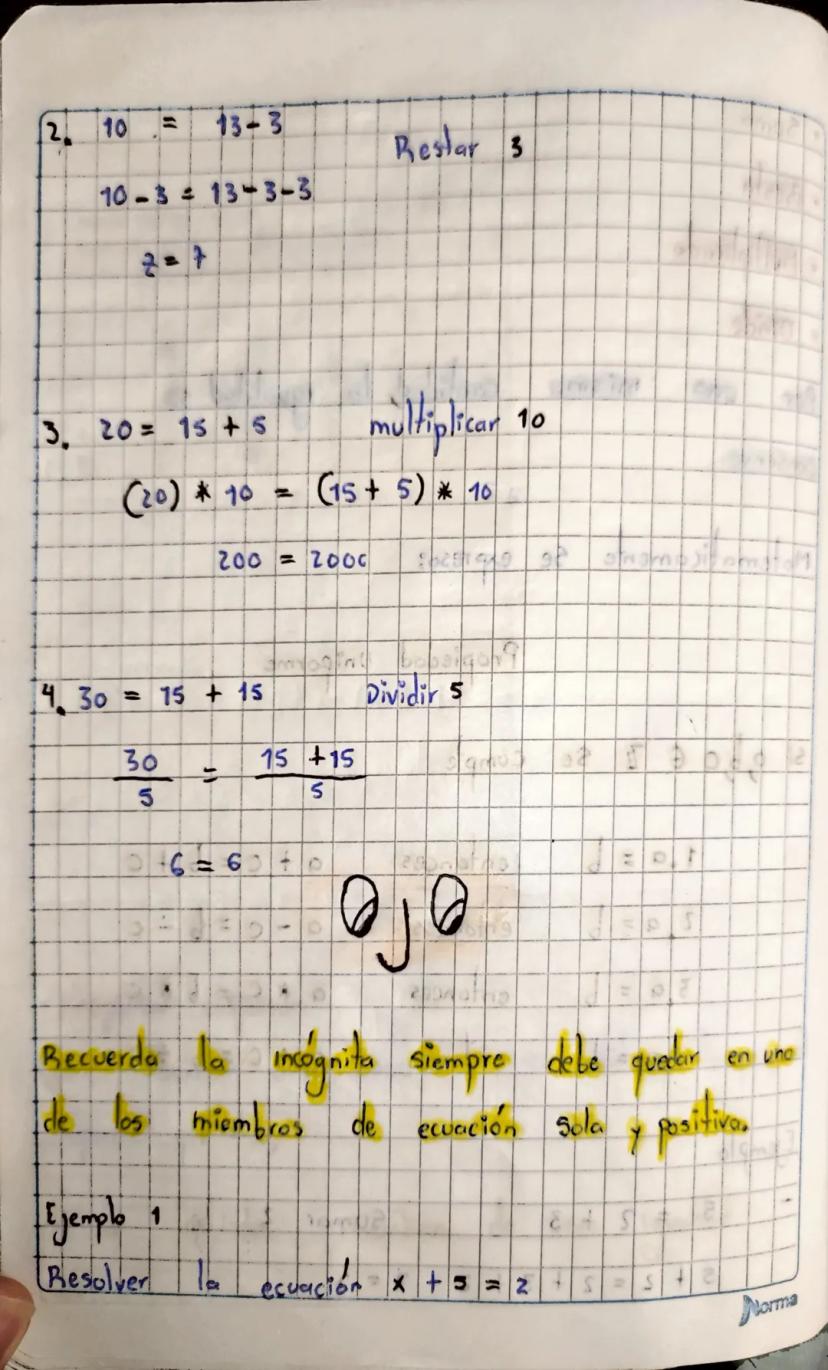 2. 10 = 13 - 3 Restar 3
10 - 3 = 13 - 3 - 3
7 = 7
3. 20 = 15 + 5 multiplicar 10
(20) * 10 = (15 + 5) * 10
200 = 200
4. 30 = 15 + 15 Dividir 5
30 / 5 = 15 + 15 / 5
6 = 6
Recuerda la incógnita siempre debe quedar en uno
de los miembros de ecuación sola y positiva.
Ejemplo 1
Resolver la ecuación x + 5 = 2
Norma